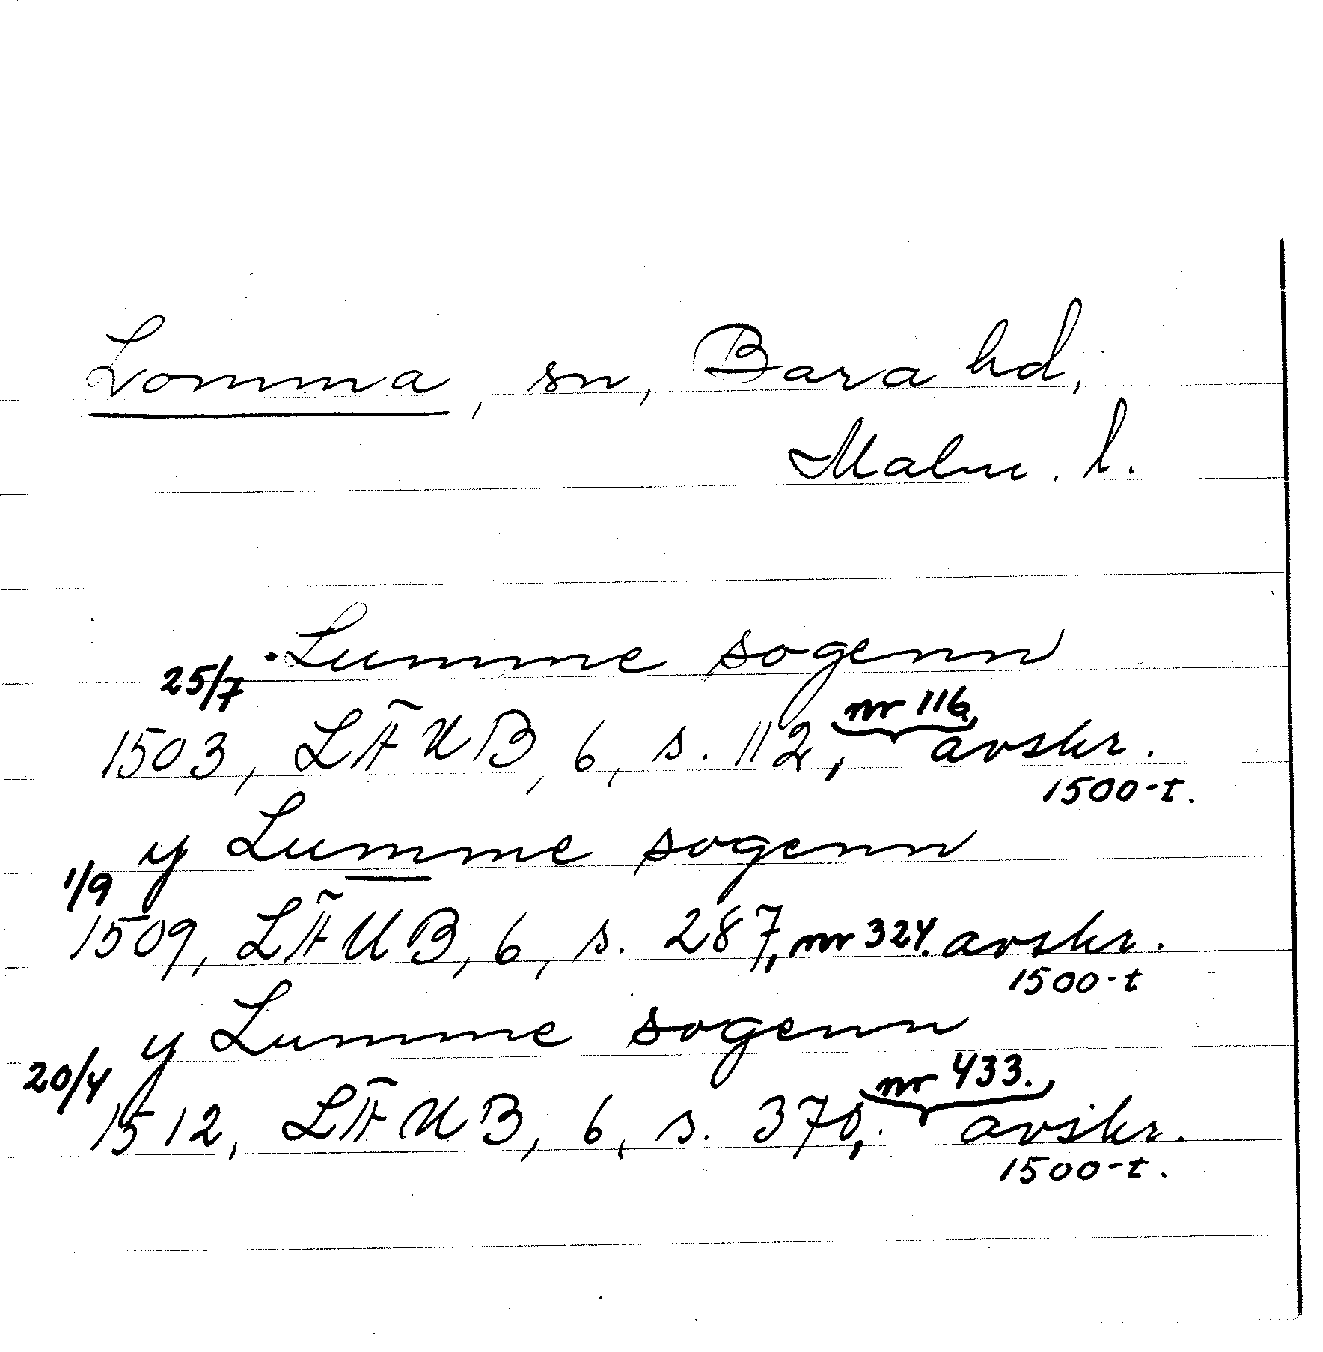 Lomma, sn, Bara hd,
Malm. l.
Lumme sogenn
25/7 1503, LÄUB, 6, s. 112, nr 116, avskr.
1500-t.
y Lumme sogenn
1/9 1509, LÄUB, 6, s. 287, nr 324. avskr.
1500-t
y Lumme sogenn
20/4 1512, LÄUB, 6, s. 370, nr 433. avskr.
1500-t.